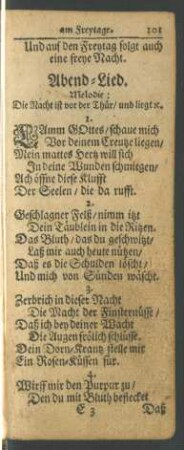 am Freytage. 101
Und auf den Freytag folgt auch
eine freye Nacht.
Abend-Lied.
Melodie:
Die Nacht ist vor der Thür/ und liegt ꝛc.
1.
LAmm GOttes/ schaue mich
Vor deinem Creutze liegen/
Mein mattes Hertz will sich
In deine Wunden schmügen/
Ach öffne diese Klufft
Der Seelen/ die da rufft.
2.
Geschlagner Felß/ nimm itzt
Dein Täublein in die Ritzen.
Das Bluth/ das du geschwitzt/
Laß mir auch heute nützen/
Daß es die Schulden löscht/
Und mich von Sünden wäscht.
3.
Zerbrich in dieser Nacht
Die Macht der Finsternüsse/
Daß ich bey deiner Wacht
Die Augen frölich schlüsse.
Dein Dorn-Krantz stelle mir
Ein Rosen-Küssen für.
4.
Wirff mir den Purpur zu/
Den du mit Bluth beflecket
E 3 Daß